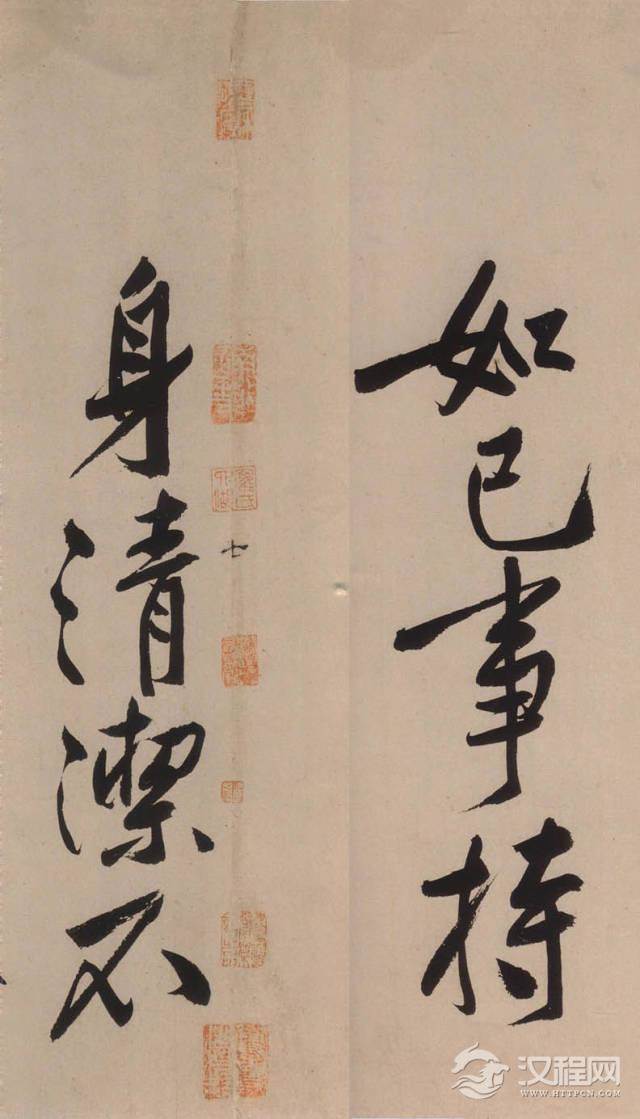 如已事持
七
身清潔不
汉程网
WWW.HTTPCN.COM